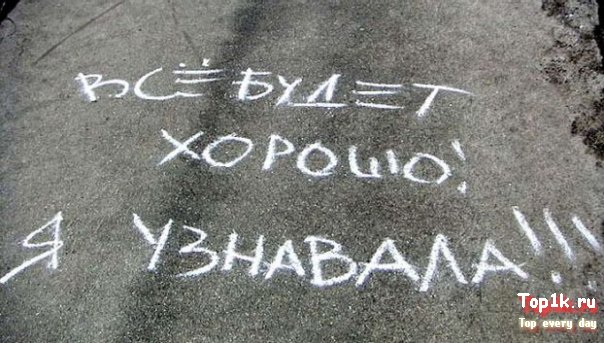 ВСЁ БУДЕТ
ХОРОШО!
Я УЗНАВАЛА!!!
Top1k.ru
Top every day